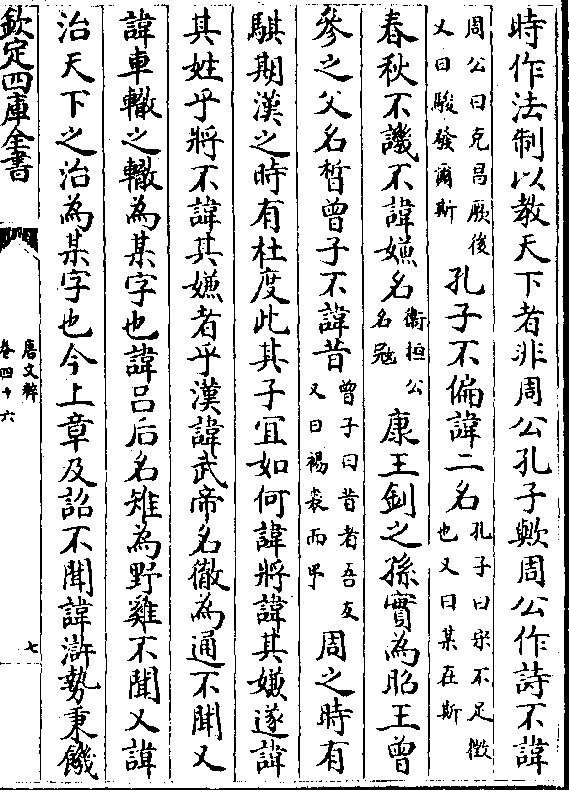 時作法制以教天下者非周公孔子歟周公作詩不諱
周公曰克昌厥後又曰駿發爾斯孔子不偏諱二名孔子曰宋不足徴也又曰某在斯
春秋不譏不諱嫌名衛桓公名完康王釗之孫實為昭王曾
參之父名晳曾子不諱昔曾子曰昔者吾友又曰裼裘而弔周之時有
騏期漢之時有杜度此其子宜如何諱將諱其嫌遂諱
其姓乎將不諱其嫌者乎漢諱武帝名徹為通不聞又
諱車轍之轍為某字也諱吕后名雉為野雞不聞又諱
治天下之治為某字也今上章及詔不聞諱滸勢秉饑
欽定四庫全書
唐文粹
卷四十六
七